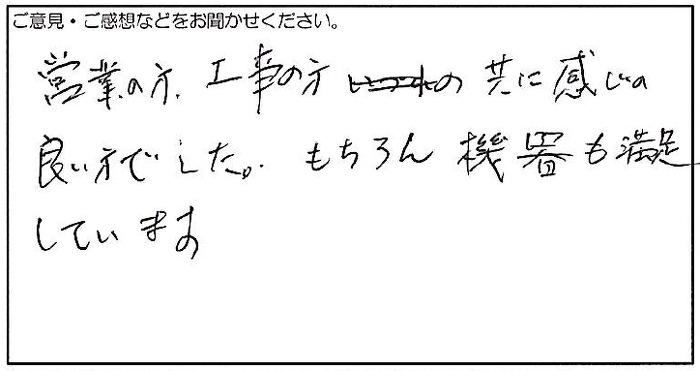 ご意見・ご感想などをお聞かせください。
営業の方、工事の方 共に感じの
良い方でした。もちろん機器も満足
しています